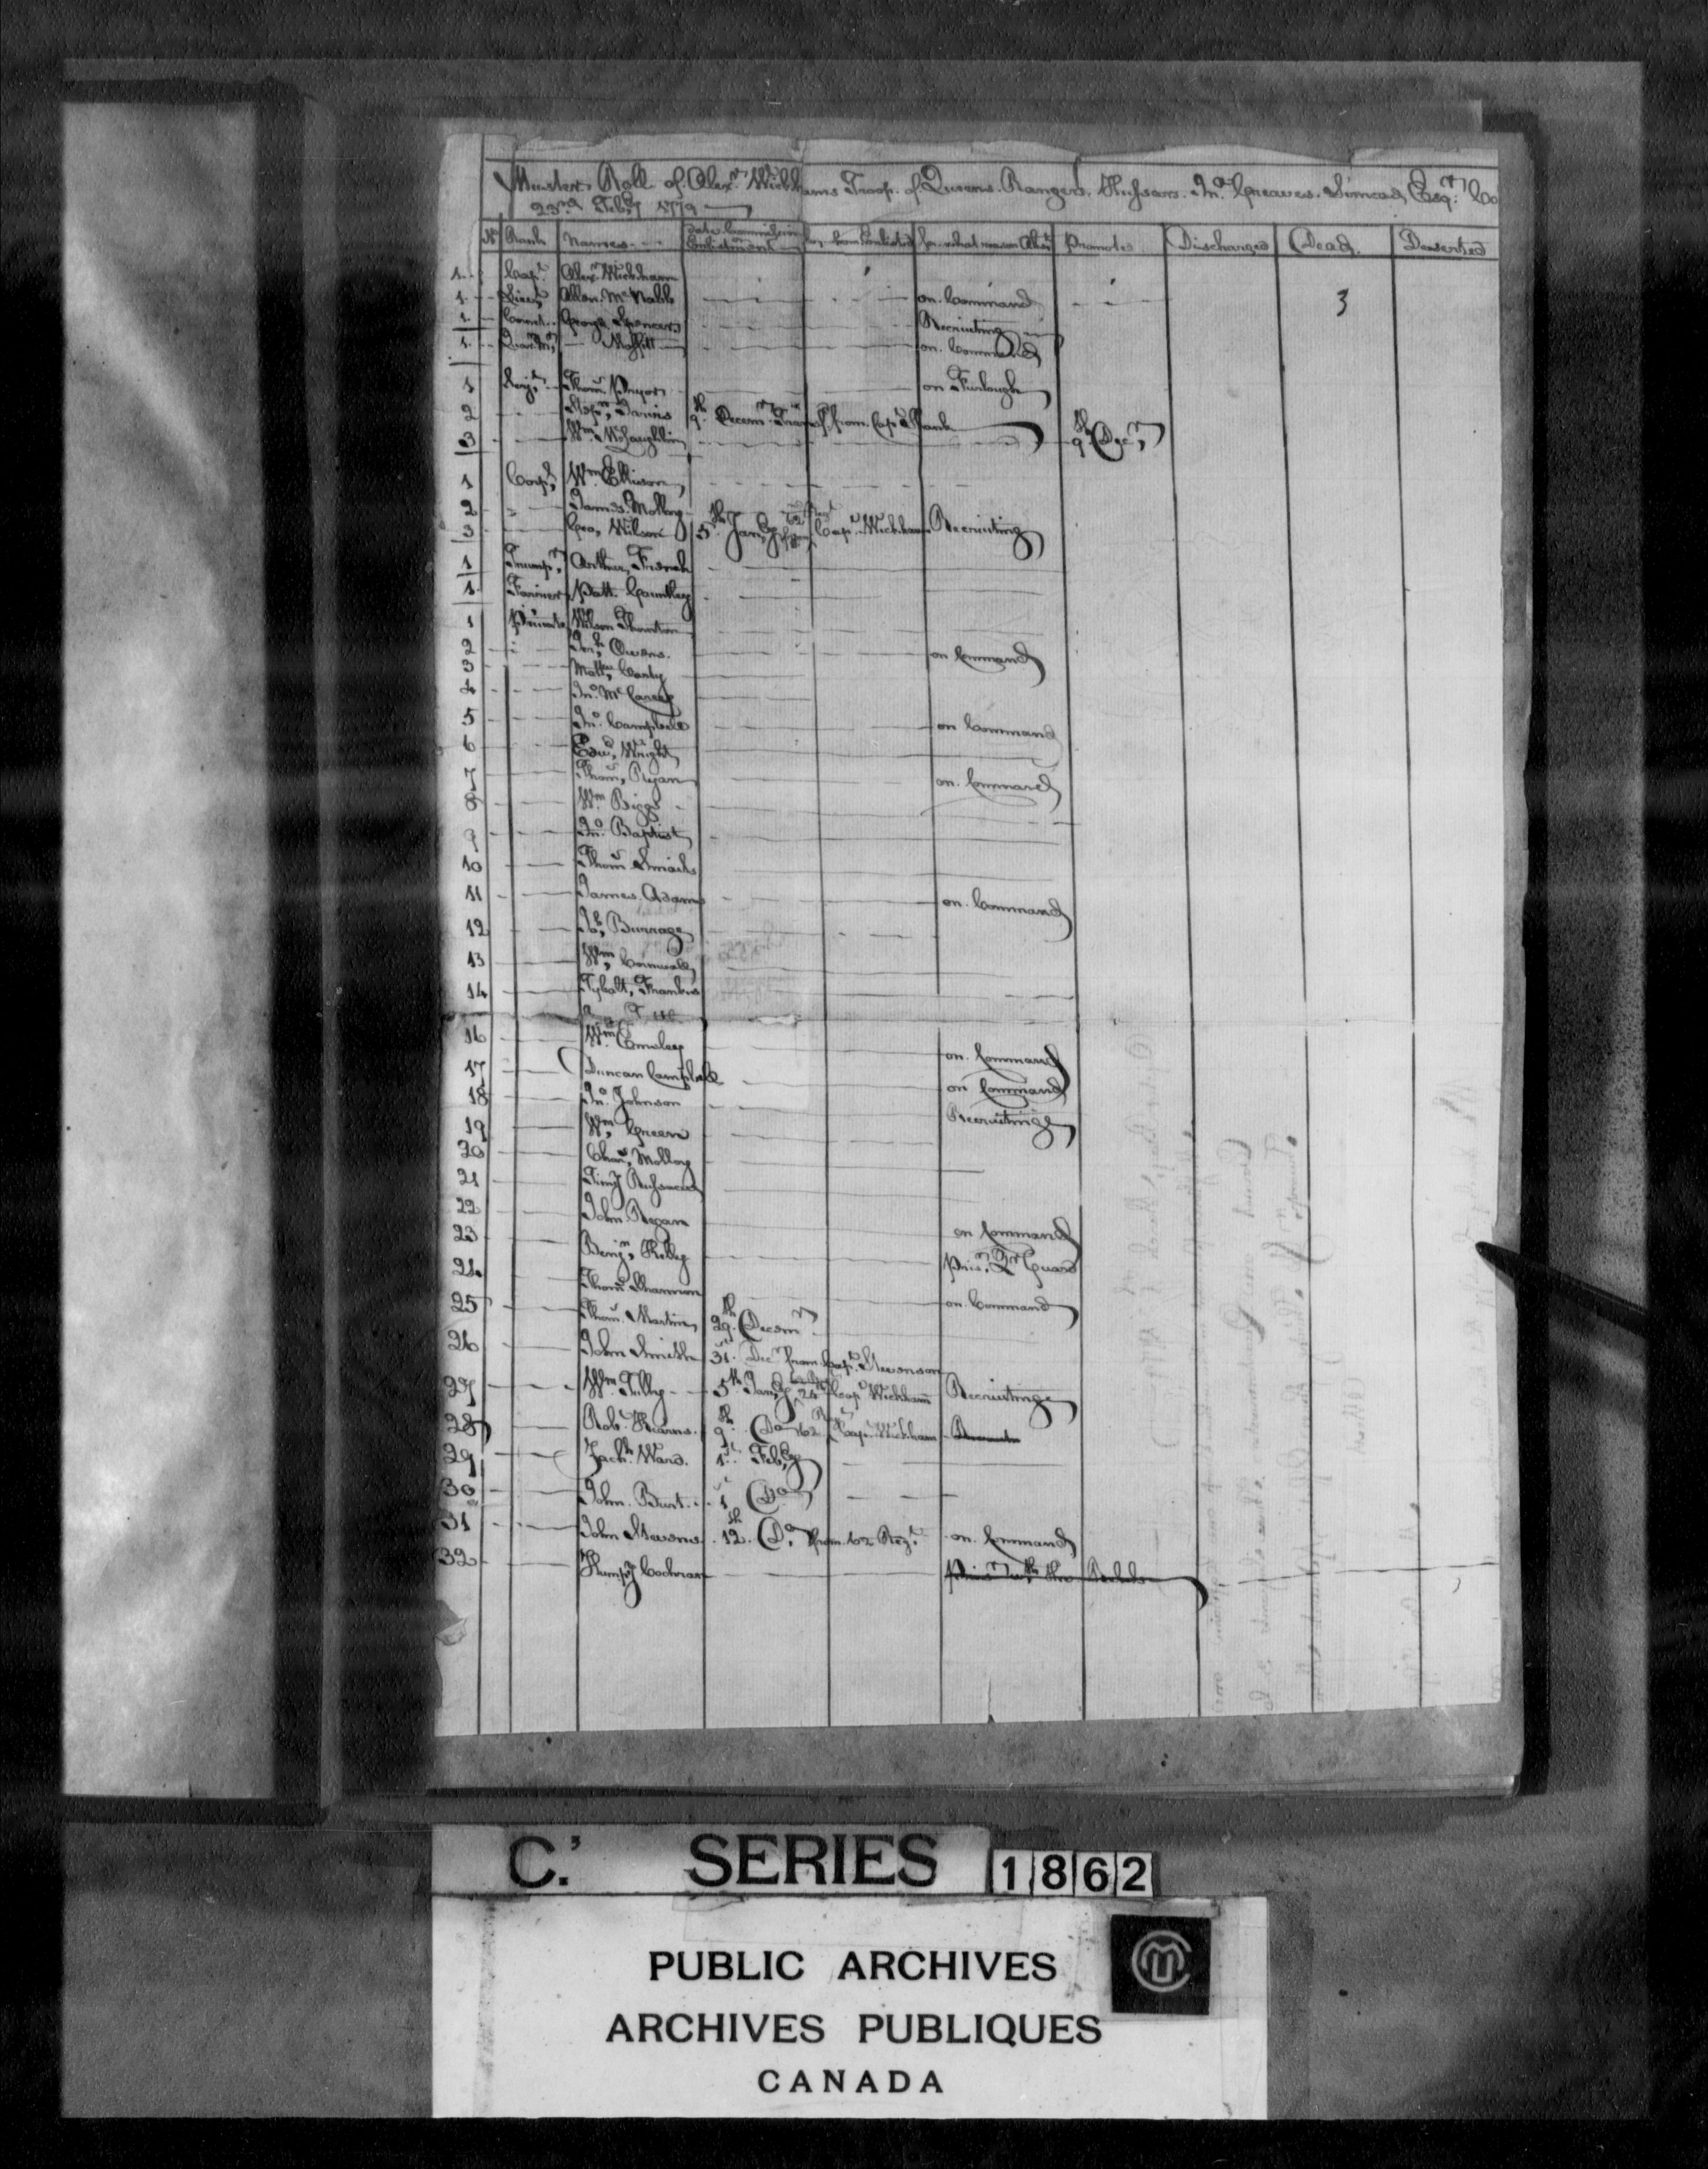 Muster Roll of Alexr Wickhams Troop of Queens Rangers Hussars Jno Greaves Simcoe Esqr Co
23rd Feby 1779
No Rank Names Date Commission Enlistment by whom Enlisted for what reason Absent Promoted Discharged Dead Deserted
1 Capt Alexr Wickham
1 Lieut Allan McNabb on Command 3
1 Cornet George Spencer Recruiting
1 Quar Mr on Command
1 Serjt Thos Pryor on Furlough
2 9th Decemr Transf from Capt
3 Wm McLaughlin 9th Decr
1 Corpl Wm Ellison
2 James Molloy
3 Geo, Wilson 5th Jany Capt Wickham Recruiting
1 Trumpr Arthur French
1 Farrier Patt
1 Private Wilson Thornton
2 Owens on Command
3 Matth Carty
4 Jno Mc
5 Jno Campbell on Command
6 Edwd Wright
7 Thos Ryan on Command
8 Wm Biggs
9 Jno Baptist
10 Thos
11 James Adams on Command
12 Burrage
13 Wm Cornwall
14 Tybalt
16 Wm on Command
17 Duncan Campbell on Command
18 Jno Johnson Recruiting
19 Wm Green
20 Chas Molloy
21 Timy
22 John Regan on Command
23 Benjn Prisr Guard
24 Thos Shannon on Command
25 Thos Martin 29th Decemr
26 John Smith 31st Decr from Capt Stevenson
27 Wm Tilley 5th Jany Capt Wickham Recruiting
28 Robt Kearns 9th Do Capt Wickham
29 Zach Ward 1st Feby
30 John Burt 1st Do
31 John Stevens 12th Do from 62 Regt on Command
32 Humpy Cochran
C.' SERIES 1862
PUBLIC ARCHIVES
ARCHIVES PUBLIQUES
CANADA